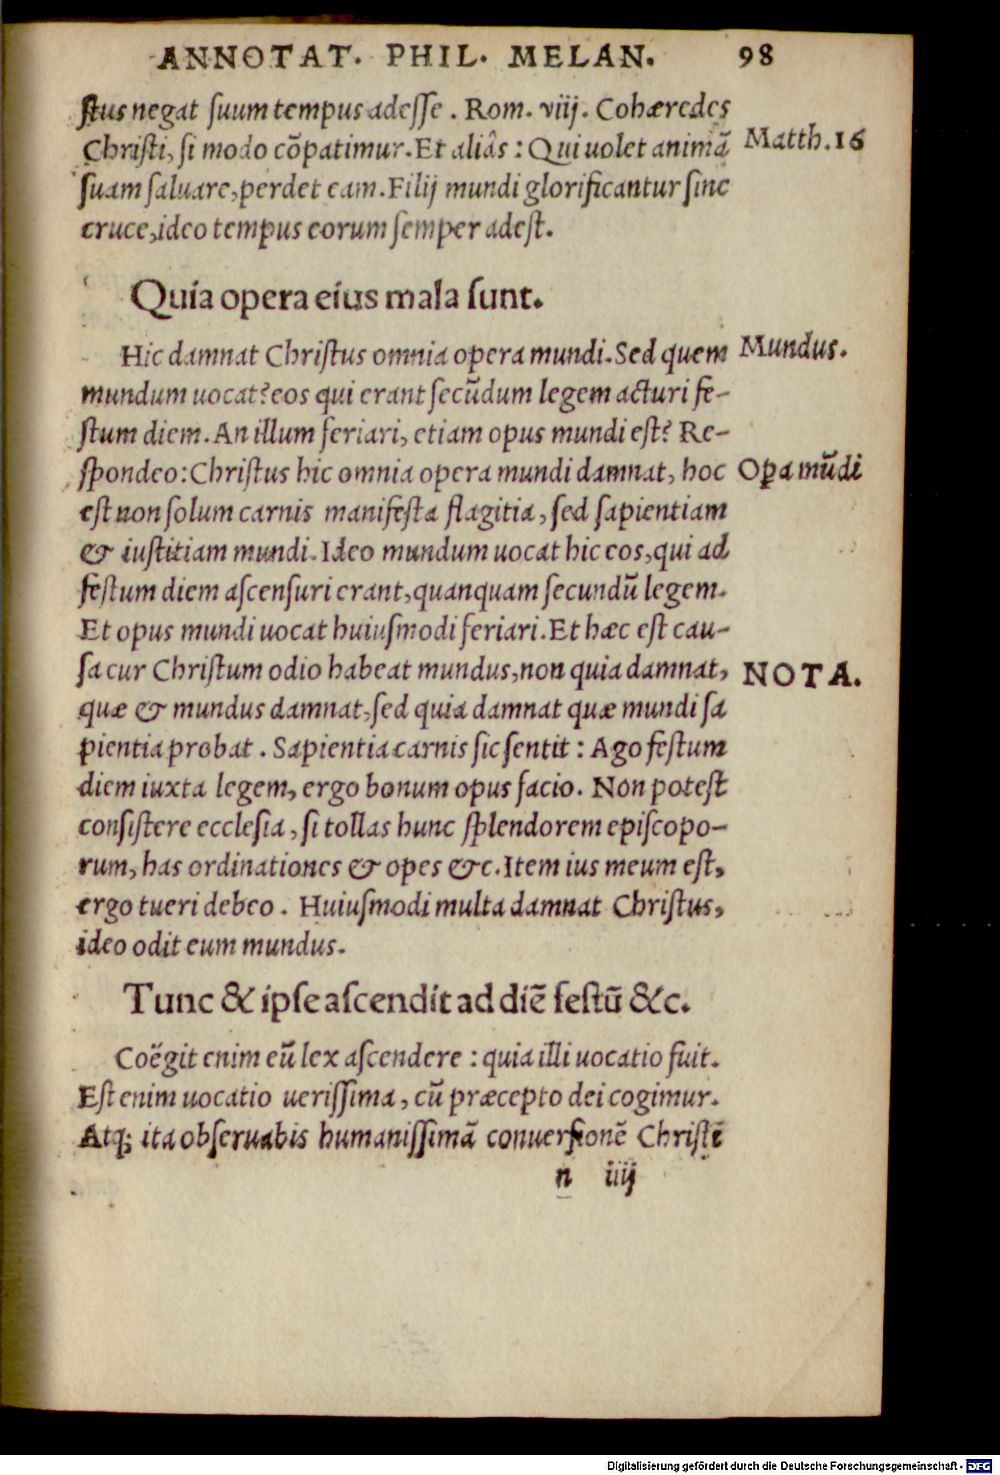 ANNOTAT. PHIL. MELAN. 98
ſtus negat ſuum tempus adeſſe. Rom. viij. Cohæredes
Chriſti, ſi modo cōpatimur. Et aliâs: Qui uolet animā
Matth. 16
ſuam ſaluare, perdet eam. Filij mundi glorificantur ſine
cruce, ideo tempus eorum ſemper adeſt.
Quia opera eius mala ſunt.
Hic damnat Chriſtus omnia opera mundi. Sed quem
Mundus.
mundum uocat? eos qui erant ſecūdum legem acturi fe-
ſtum diem. An illum feriari, etiam opus mundi eſt? Re-
ſpondeo: Chriſtus hic omnia opera mundi damnat, hoc
Oꝑa mūdi
eſt non ſolum carnis manifeſta flagitia, ſed ſapientiam
& iuſtitiam mundi. Ideo mundum uocat hic eos, qui ad
feſtum diem aſcenſuri erant, quanquam ſecundū legem.
Et opus mundi uocat huiuſmodi feriari. Et hæc eſt cau-
ſa cur Chriſtum odio habeat mundus, non quia damnat,
NOTA.
quæ & mundus damnat, ſed quia damnat quæ mundi ſa
pientia probat. Sapientia carnis ſic ſentit: Ago feſtum
diem iuxta legem, ergo bonum opus facio. Non poteſt
conſiſtere eccleſia, ſi tollas hunc ſplendorem epiſcopo-
rum, has ordinationes & opes &c. Item ius meum eſt,
ergo tueri debeo. Huiuſmodi multa damnat Chriſtus,
ideo odit eum mundus.
Tunc & ipſe aſcendit ad diē feſtū &c.
Coëgit enim eū lex aſcendere: quia illi uocatio fuit.
Eſt enim uocatio ueriſſima, cū præcepto dei cogimur.
Atq; ita obſeruabis humaniſſimā conuerſionē Chriſti
n iiij
Digitalisierung gefördert durch die Deutsche Forschungsgemeinschaft - DFG